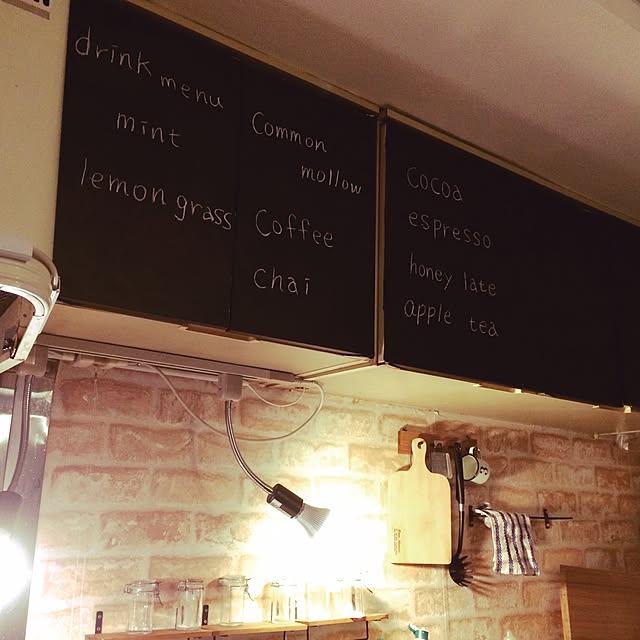 drink menu
mint
lemon grass
Common
mollow
Coffee
chai
cocoa
espresso
honey late
apple tea